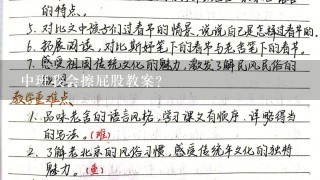 的特点。
5. 对比文中孩子们过春节的情景,说说自己是怎样过春节的。
6. 拓展阅读,对比斯妤笔下的春节与老舍笔下的春节。
7. 感受祖国传统文化的魅力,激发了解民风民俗的
中班我会擦屁股教案?
教学重难点
1. 品味老舍的语言风格,学习课文有顺序、详略得当
的写法。(难)
2. 了解老北京的风俗习惯,感受传统年文化的独特
魅力。(重)